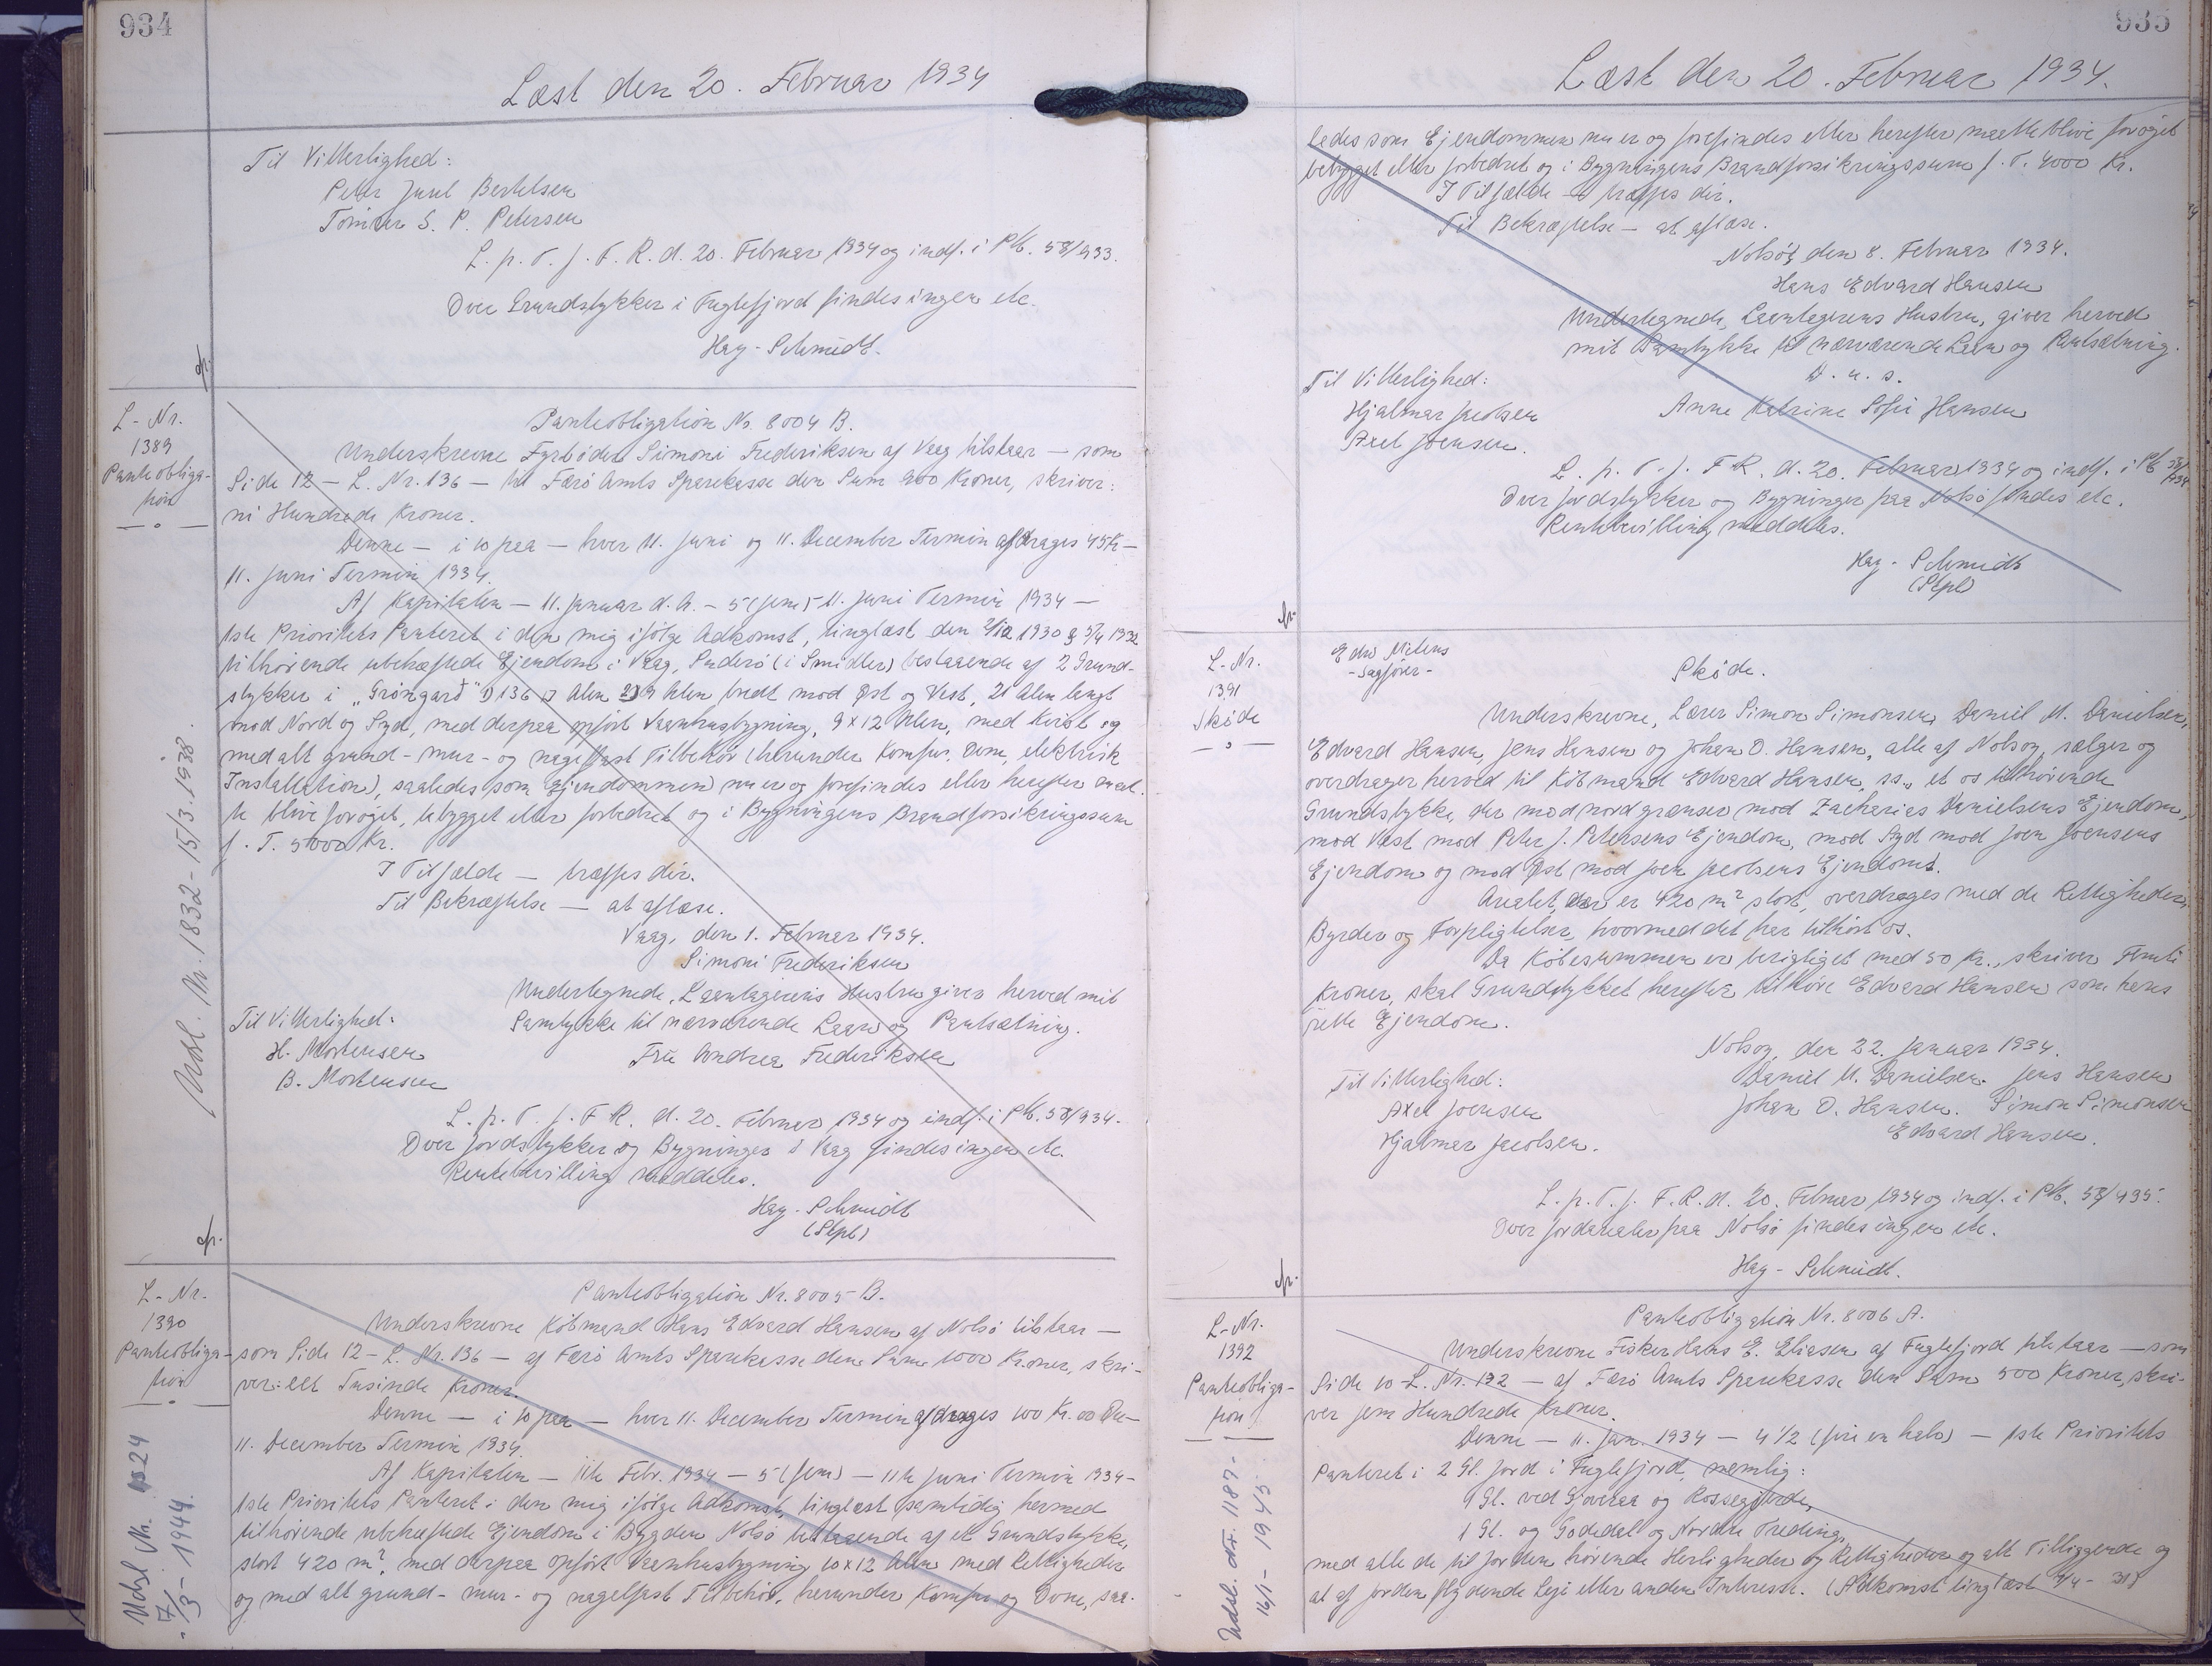 934
Læst den 20. Februar 1934
Til Vitterlighed:
Peter Juul Berthelsen
Tömrer S. P. Petersen
L. p. T. f. F. R. d. 20. Februar 1934 og indf. i Pb. 58/933.
Over Grundstykker i Fuglefjord findes ingen etc.
Hay-Schmidt.
L-Nr.
1389
Panteobliga-
tion
Panteobligation Nr. 8004 B.
Underskrevne Fyrböder Simoni Frederiksen af Vaag tilstaar — som
Side 12 — L. Nr. 136 — til Færö Amts Sparekasse den Sum 900 Kroner, skriver:
ni Hundrede Kroner.
Denne — i 10 paa — hver 11. Juni og 11. December Termin afdrages 45 Kr —
11. Juni Termin 1934.
Af Kapitalen — 11. Januar d. A. — 5 (fem) 11. Juni Termin 1934 —
1ste Prioritets Panteret i den mig ifölge Adkomst, tinglæst den 2/12 1930 & 5/4 1932
tilhörende ubehæftede Ejendom i Vaag, Suderö (i Smidler) bestaaende af 2 Grund-
stykker i "Gröngarð" 1) 136 □ Alen 2) 9 Alen bredt mod Öst og Vest, 21 Alen langt
mod Nord og Syd, med derpaa opfört Vaanhusbygning, 9 x 12 Alen, med Kvist og
med alt grund- mur- og nagelfast Tilbehör (herunder Komfur, Ovne, elektrisk
Installation), saaledes som Ejendommen nu er og forefindes eller herefter maat-
te blive foröget, bebygget eller forbedret og i Bygningens Brandforsikringssum
f. T. 5000 Kr.
I Tilfælde — træffes dér.
Til Bekræftelse — at aflæse.
Vaag, den 1. Februar 1934.
Simoni Frederiksen
Undertegnede, Laantagerens Hustru giver herved mit
Samtykke til nærværende Laan og Pantsætning.
Til Vitterlighed:
H. Mortensen
B. Mortensen
Fru Andrea Frederiksen
L. p. T. f. F. R. d. 20. Februar 1934 og indf. i Pb. 58/934.
Over Jordstykker og Bygninger i Vaag findes ingen etc.
Rentebevilling meddeles.
Hay-Schmidt
(Stpl)
Udsl. Nr. 1832 - 15/3. 1938.
L-Nr.
1390
Panteobliga-
tion
Panteobligation Nr. 8005 B.
Underskrevne Köbmand Hans Edvard Hansen af Nolsö tilstaar —
som Side 12 — L. Nr. 136 — af Færö Amts Sparekasse den Sum 1000 Kroner, skri-
ver: eet Tusinde Kroner.
Denne — i 10 paa — hver 11. December Termin afdrages 100 Kr. 00 Øre —
11. December Termin 1934.
Af Kapitalen — 11te Febr. 1934 — 5 (fem) — 11te Juni Termin 1934 —
1ste Prioritets Panteret i den mig ifölge Adkomst, tinglæst samtidig hermed
tilhörende ubehæftede Ejendom i Bygden Nolsö bestaaende af et Grundstykke,
stort 420 m², med derpaa opfört Vaanhusbygning 10 x 12 Alen med Rettigheder
og med alt grund- mur- og nagelfast Tilbehör, herunder Komfur og Ovne, saa-
Udsl. Nr. 24
7/3 - 1944.
935
Læst den 20. Februar 1934.
ledes som Ejendommen nu er og forefindes eller herefter maatte blive foröget
bebygget eller forbedret og i Bygningens Brandforsikringssum f. T. 4000 Kr.
I Tilfælde — træffes dér.
Til Bekræftelse — at aflæse.
Nolsö, den 8. Februar 1934.
Hans Edvard Hansen
Undertegnede, Laantagerens Hustru, giver herved
mit Samtykke til nærværende Laan og Pantsætning.
D. u. s.
Til Vitterlighed:
Hjalmar Jacobsen
Axel Joensen.
Anne Katrine Sofie Hansen
L. p. T. f. F. R. d. 20. Februar 1934 og indf. i Pb 58/934.
Over Jordstykker og Bygninger paa Nolsö findes etc.
Rentebevilling meddeles.
Hay-Schmidt
(Stpl)
L-Nr.
1391
Sköde
Edw Mitens
- Sagförer -
Sköde.
Underskrevne, Lærer Simon Simonsen, Daniel M. Danielsen,
Edvard Hansen, Jens Hansen og Johan O. Hansen, alle af Nolsoy, sælger og
overdrager herved til Köbmand Edvard Hansen, ss., et os tilhörende
Grundstykke, der mod nord grænser mod Zacharias Danielsens Ejendom,
mod Vest mod Peter J. Petersens Ejendom, mod Syd mod Joen Joensens
Ejendom og mod Öst mod Joen Jacobsens Ejendom.
Arealet, der er 420 m² stort, overdrages med de Rettigheder,
Byrder og Forpligtelser, hvormed det har tilhört os.
Da Köbesummen er berigtiget med 50 Kr., skriver Femti
Kroner, skal Grundstykket herefter tilhöre Edvard Hansen som hans
rette Ejendom.
Nolsoy, den 22. Januar 1934.
Til Vitterlighed:
Axel Joensen
Hjalmar Jacobsen.
Daniel M. Danielsen. Jens Hansen
Johan O. Hansen. Simon Simonsen
Edvard Hansen.
L. p. T. f. F. R. d. 20. Februar 1934 og indf. i Pb. 58/935.
Over Jordarealer paa Nolsö findes ingen etc.
Hay-Schmidt.
L-Nr.
1392
Panteobliga-
tion
Panteobligation Nr. 8006 A.
Underskrevne Fisker Hans E. Eliasen af Fuglefjord tilstaar — som
Side 10 - L. Nr. 132 — af Færö Amts Sparekasse den Sum 500 Kroner, skri-
ver fem Hundrede Kroner.
Denne — 11. Jan. 1934 — 4 1/2 (fire en halv) — 1ste Prioritets
Panteret i 2 Gl. Jord i Fuglefjord, nemlig:
1 Gl. ved Gjoveraa og Rossegjerde,
1 Gl. og Godedal og Nordre Treding,
med alle de til Jorden hörende Herligheder og Rettigheder og alt Tilliggende og
at af Jorden flydende Leje eller anden Interesse. (Adkomst tinglæst
Udsl. Nr. 1187 -
16/1 - 1945